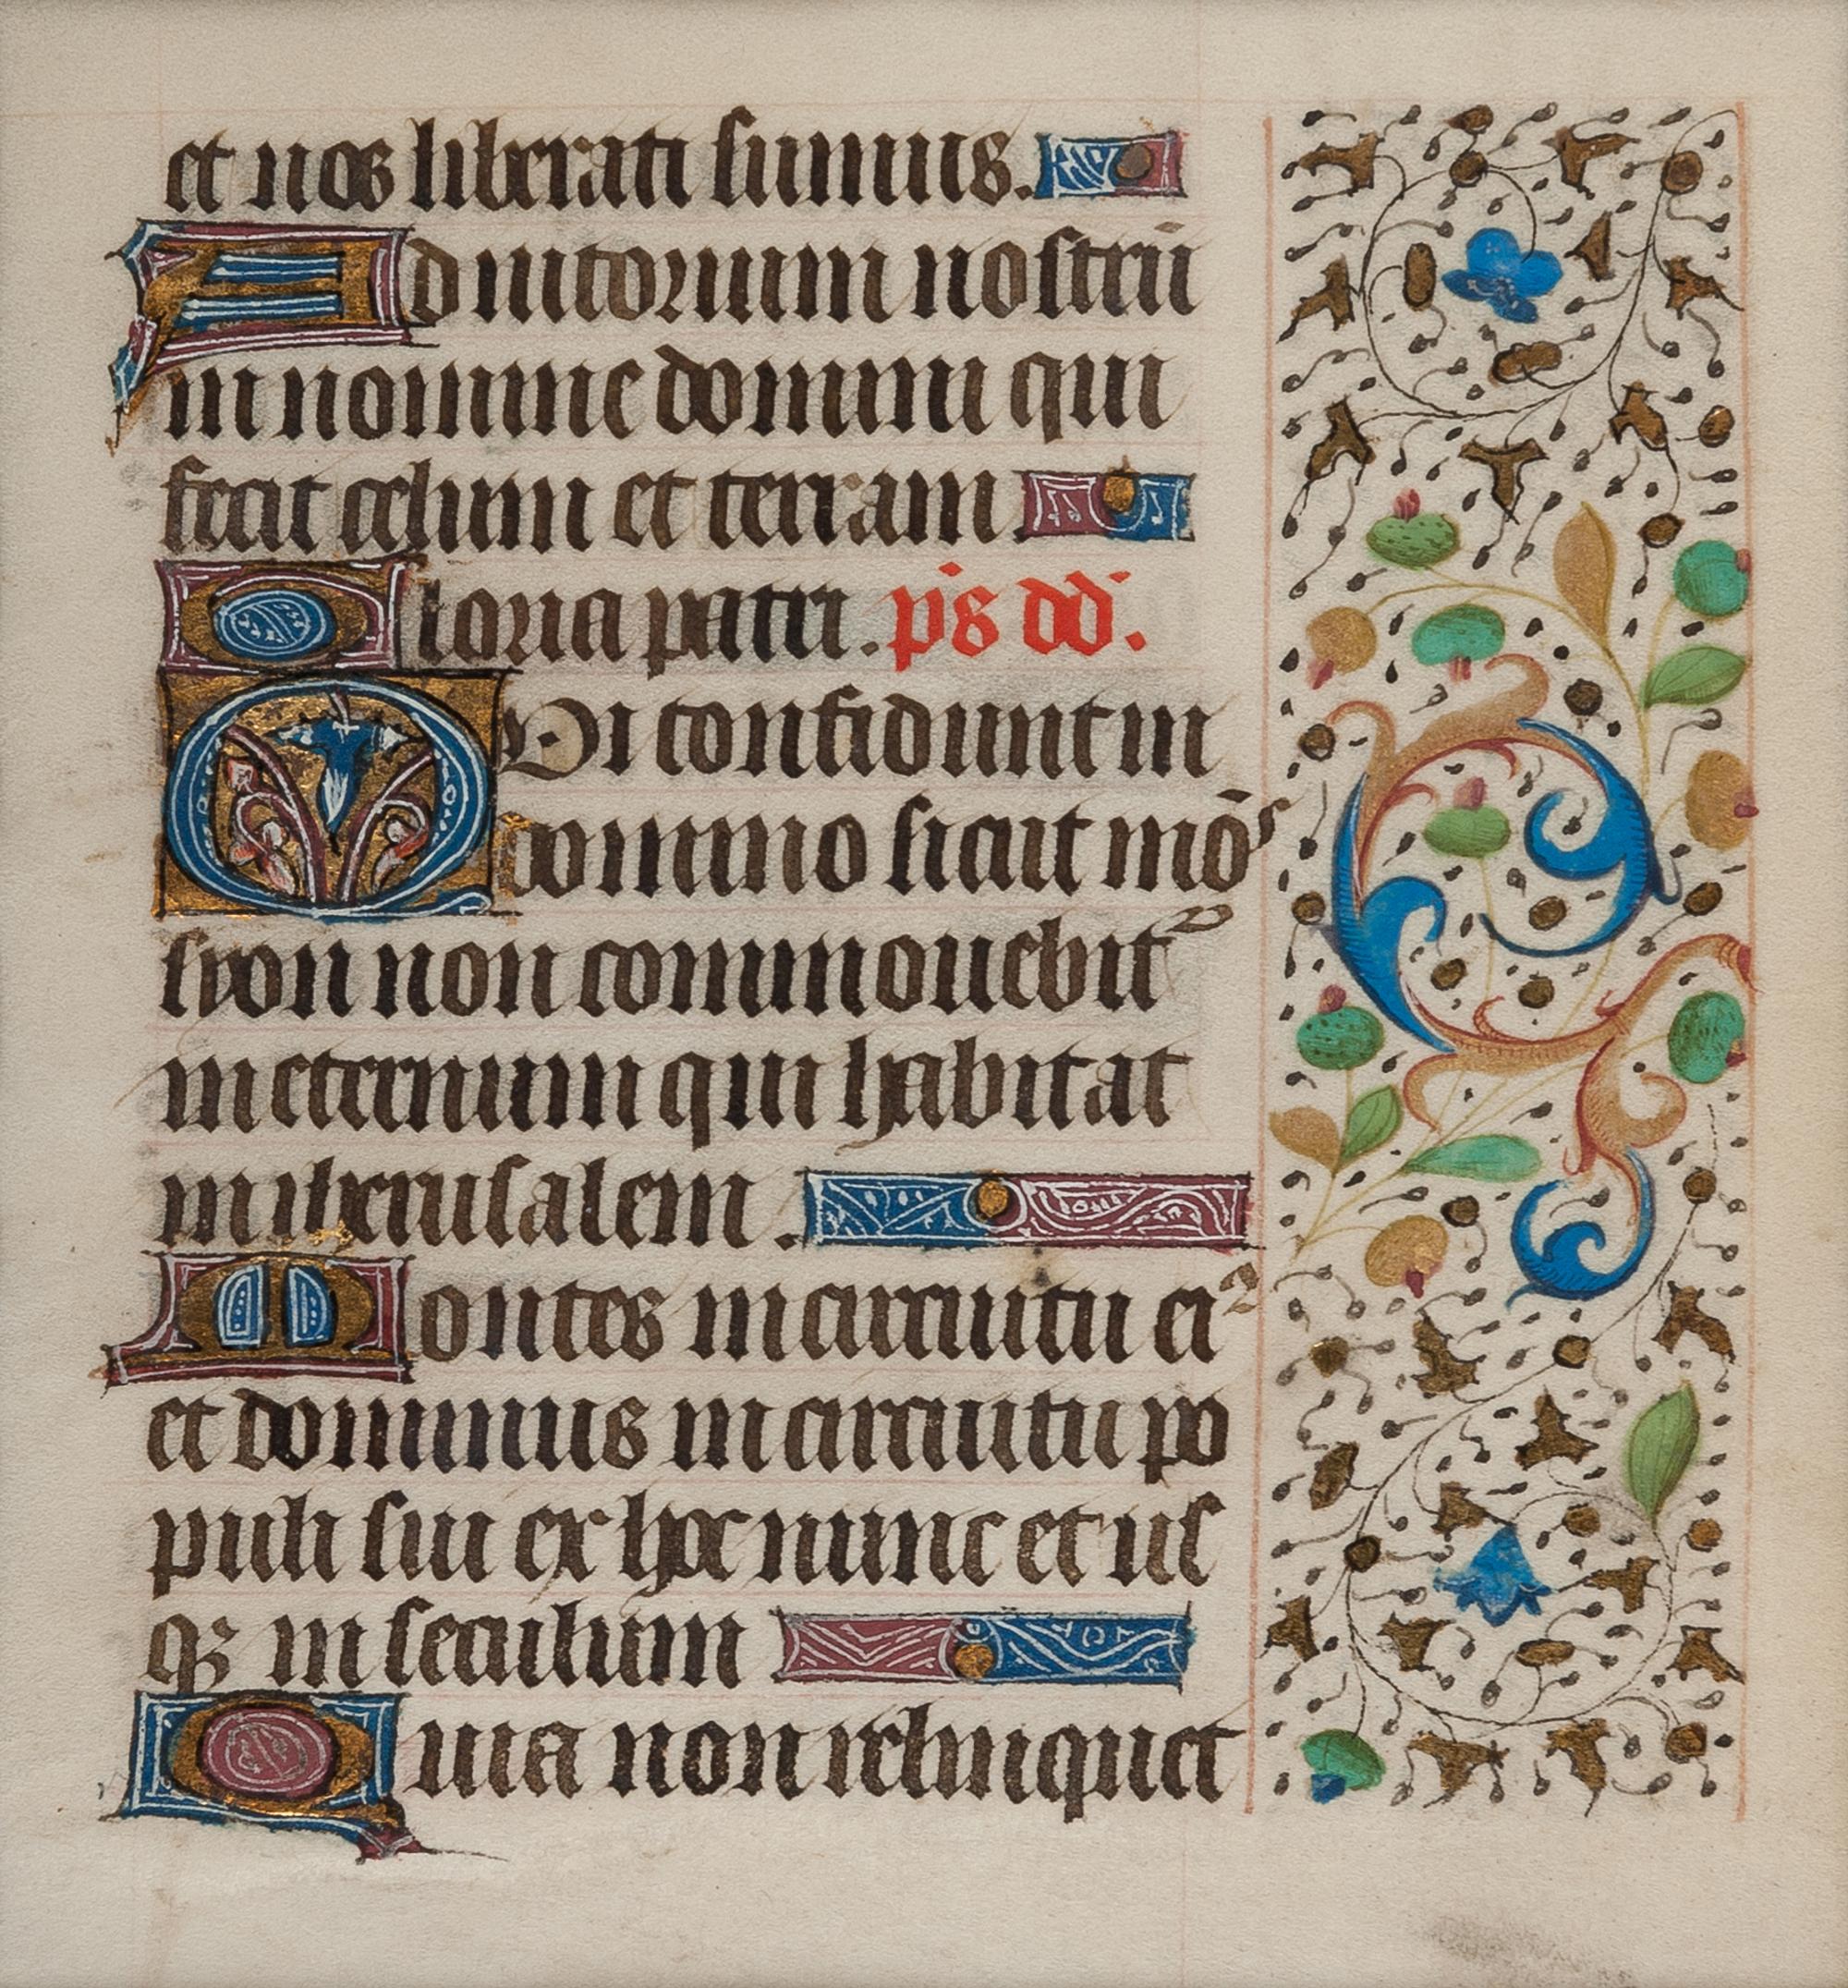 et nos liberati sumus.
Adiutorium nostrū
in nomine domini qui
fecit celum et terram
Gloria patri. p̄s dd̄.
Qui confidunt in
domino sicut mōs
syon non commouebitᷣ
in eternum qui habitat
in iherusalem.
Montes in circuitu eiꝰ
et dominus in circuitu po
puli sui ex hoc nunc et us
qꝫ in seculum
Quia non relinquet